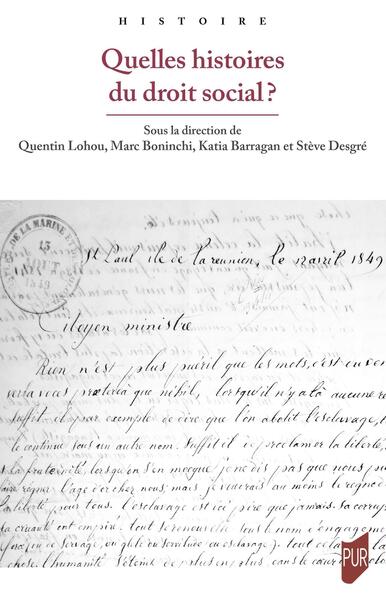 HISTOIRE
Quelles histoires
du droit social ?
Sous la direction de
Quentin Lohou, Marc Boninchi, Katia Barragan et Stève Desgré
DE LA MARINE ET
13
AOUT
1849
St Paul ile de la réunion, le 12 avril 1849
Citoyen ministre
Rien n'est plus puéril que les mots, c'est
vous nihil, lorsqu'il n'y a là aucune
suffit il par exemple de dire que l'on abolit l'esclavage,
le continue sous un autre nom. Suffit il de proclamer la liberté,
la fraternité, lorsqu'on s'en moque je ne dis pas que nous
faire régner l'âge d'or chez nous; mais je voudrais au moins le règne de
liberté pour tous. l'esclavage est ici pire que jamais. Sa
Sa cruauté ont empiré. tout se renouvelle sous le nom d'engagement
ou de Servage, ou glèbe ou Servitude ou esclavage). tout cela
chose. l'humanité s'éteint de plus en plus dans le cœur
PUR